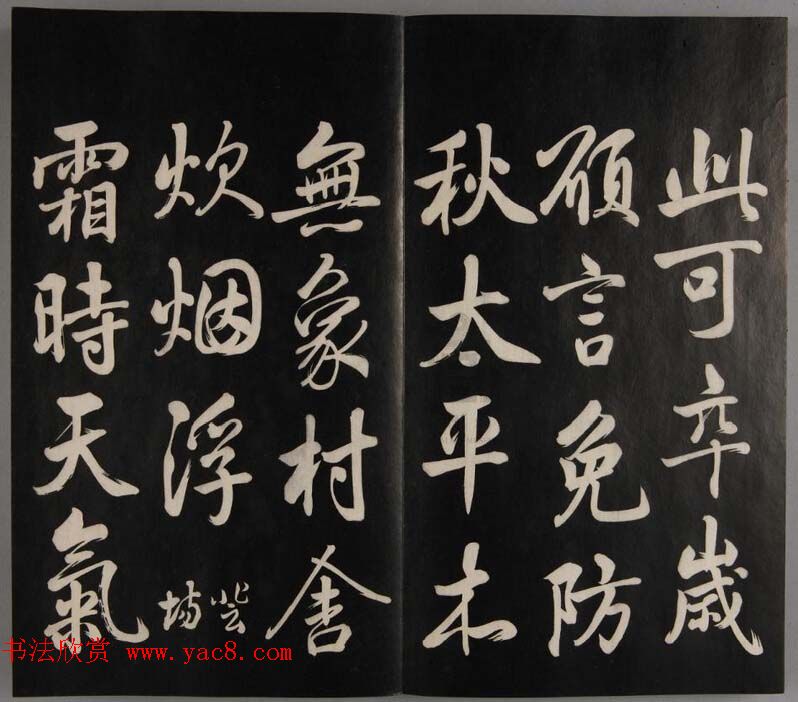 此可卒歲
願言免防
秋太平木
無象村舍
炊烟浮
霜時天氣
书法欣赏 www.yac8.com